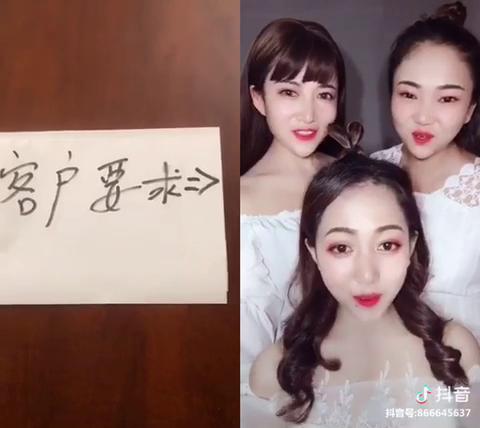 客户要求⇒
抖音
抖音号:866645637